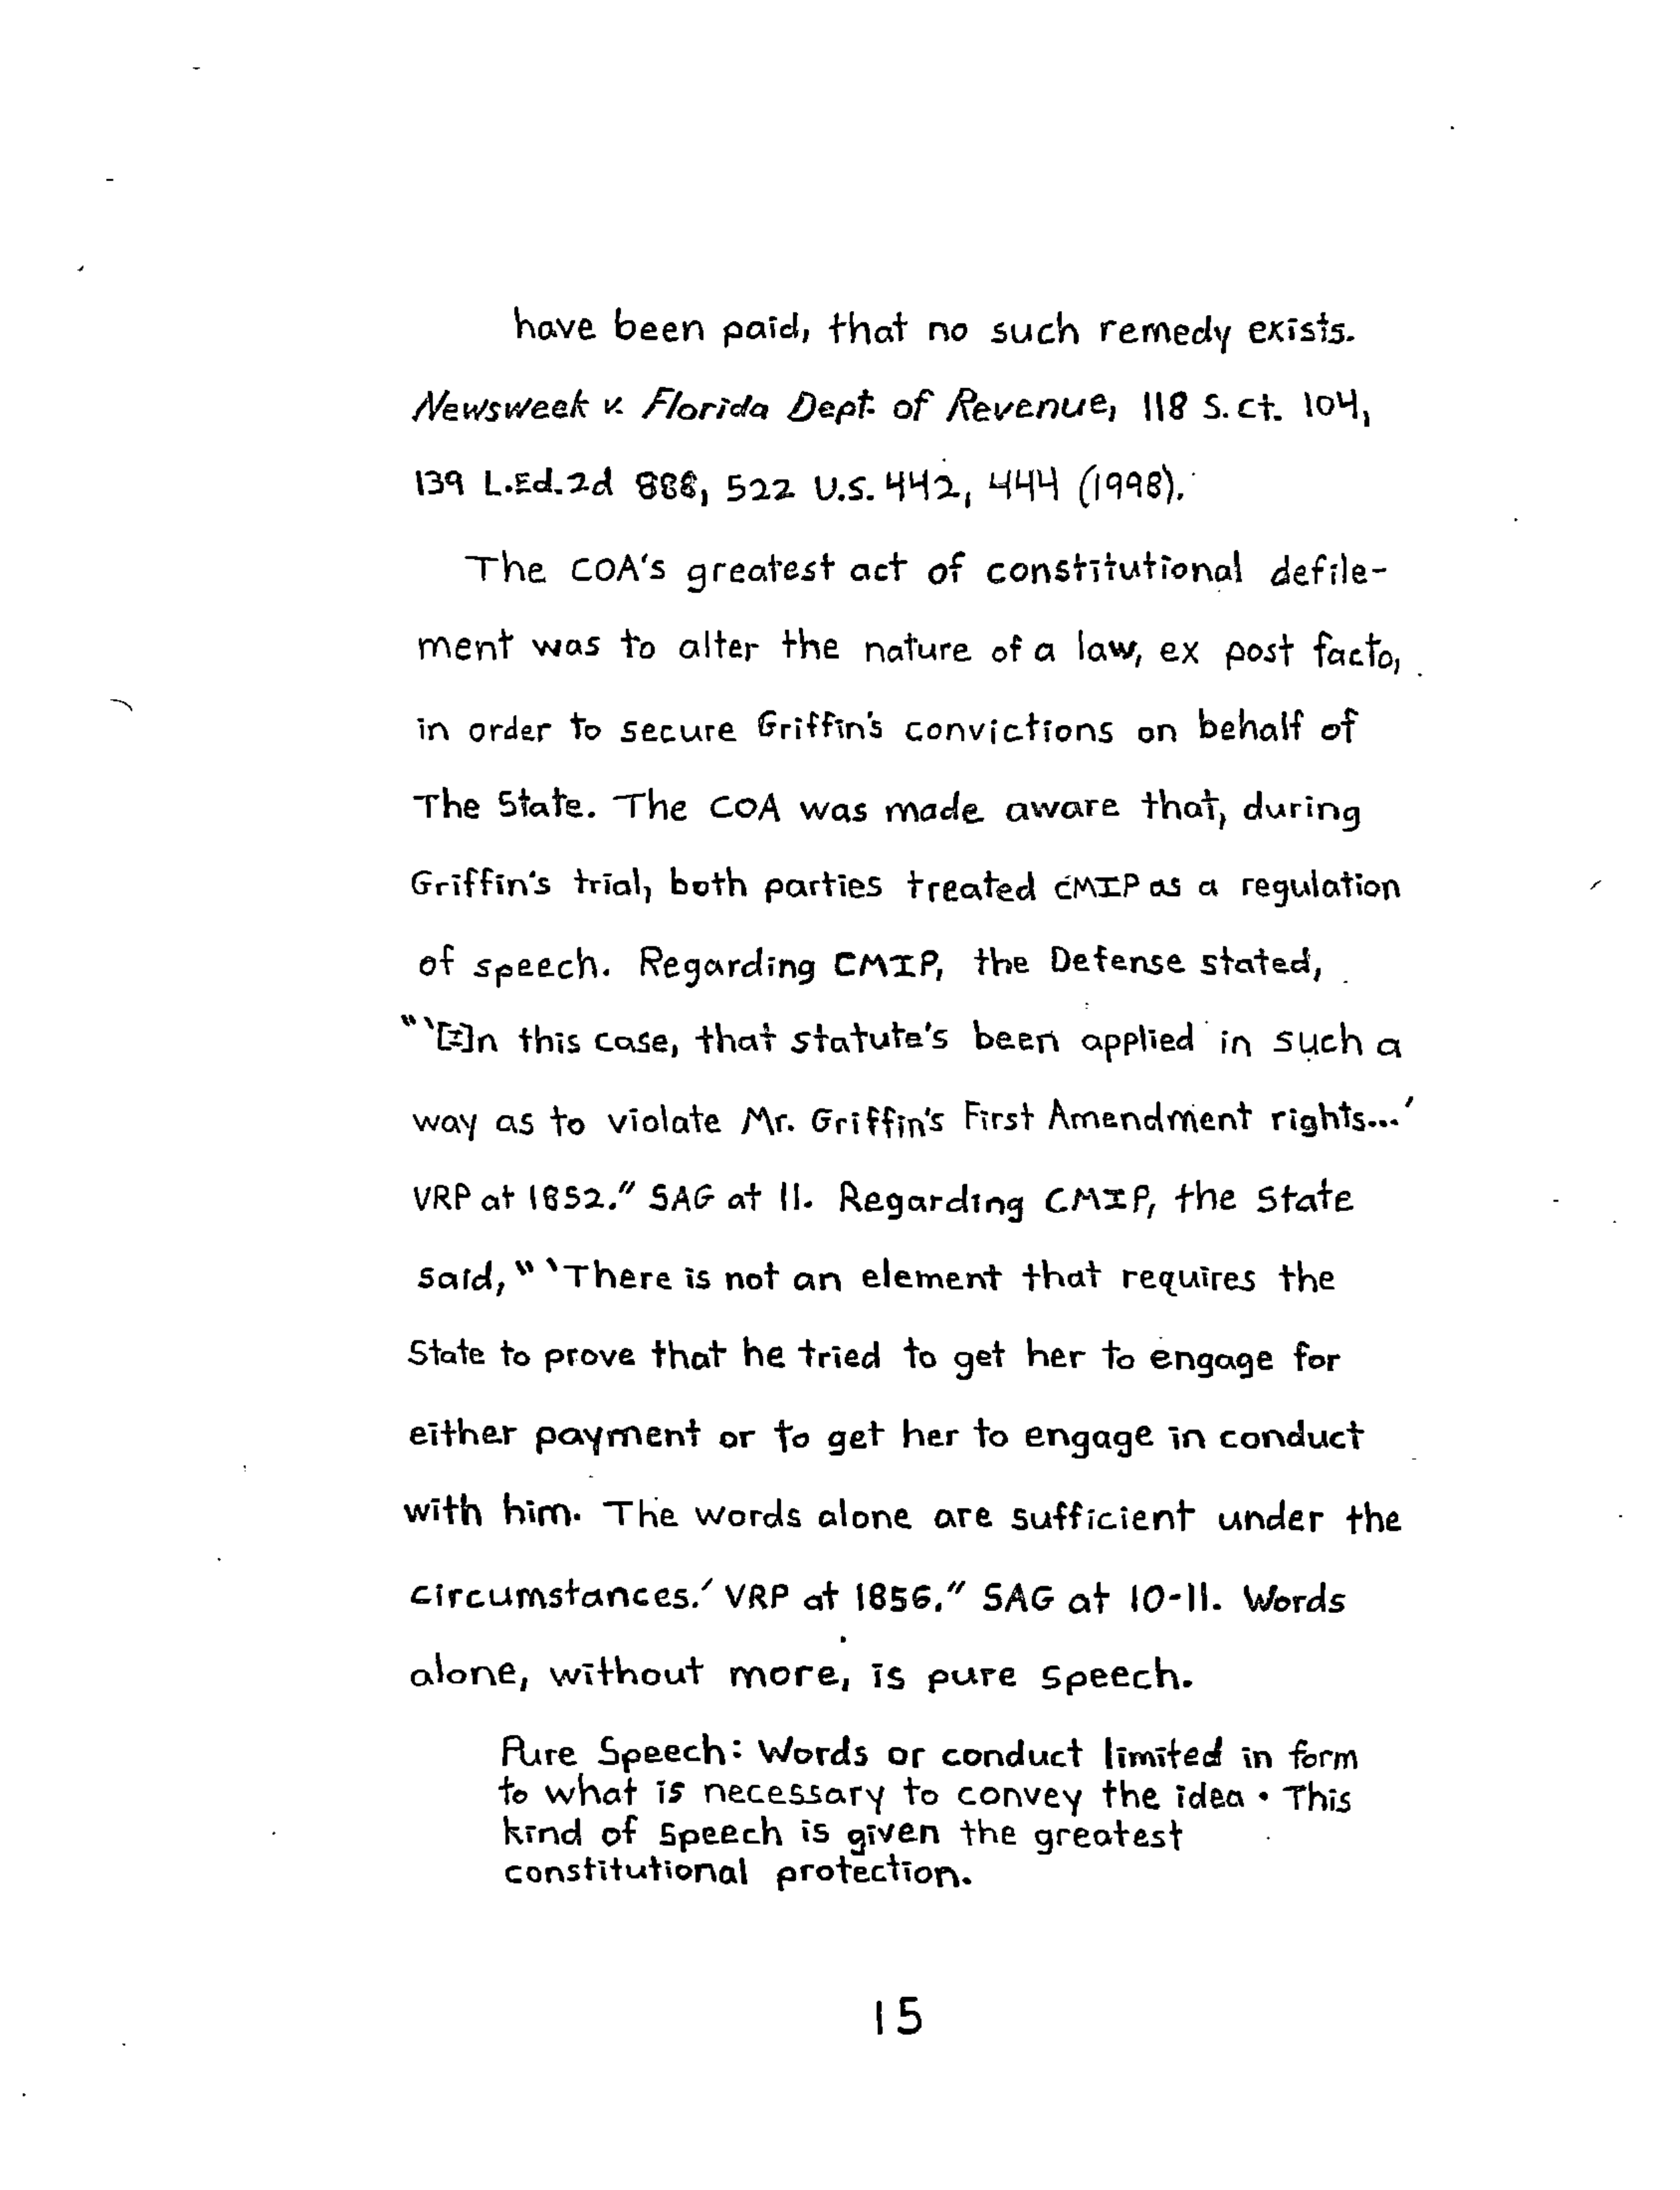 have been paid, that no such remedy exists.
Newsweek v. Florida Dept. of Revenue, 118 S.ct. 104,
139 L.Ed.2d 888, 522 U.S. 442, 444 (1998).
The COA's greatest act of constitutional defile-
ment was to alter the nature of a law, ex post facto,
in order to secure Griffin's convictions on behalf of
The State. The COA was made aware that, during
Griffin's trial, both parties treated CMIP as a regulation
of speech. Regarding CMIP, the Defense stated,
"'[I]n this case, that statute's been applied in such a
way as to violate Mr. Griffin's First Amendment rights...'
VRP at 1852." SAG at 11. Regarding CMIP, the State
said, "'There is not an element that requires the
State to prove that he tried to get her to engage for
either payment or to get her to engage in conduct
with him. The words alone are sufficient under the
circumstances.' VRP at 1856." SAG at 10-11. Words
alone, without more, is pure speech.
Pure Speech: Words or conduct limited in form
to what is necessary to convey the idea • This
kind of speech is given the greatest
constitutional protection.
15